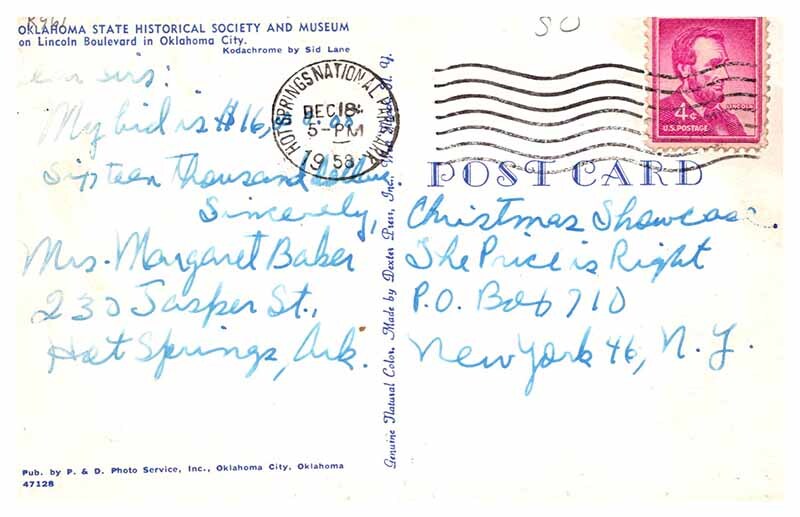 OKLAHOMA STATE HISTORICAL SOCIETY AND MUSEUM
on Lincoln Boulevard in Oklahoma City.
Kodachrome by Sid Lane
sirs:
My bid is $16,
Sixteen Thousand dollars.
Sincerely,
Mrs. Margaret Baker
230 Jasper St.,
Hot Springs, Ark.
Pub. by P. & D. Photo Service, Inc., Oklahoma City, Oklahoma
47128
Genuine Natural Color, Made by Dexter Press, Inc., N. Y.
HOT SPRINGS NATIONAL PARK, ARK.
DEC 18
5-PM
1958
50
LINCOLN
4¢
U.S. POSTAGE
POST CARD
Christmas Showcase
The Price is Right
P.O. Box 710
New York 46, N.Y.